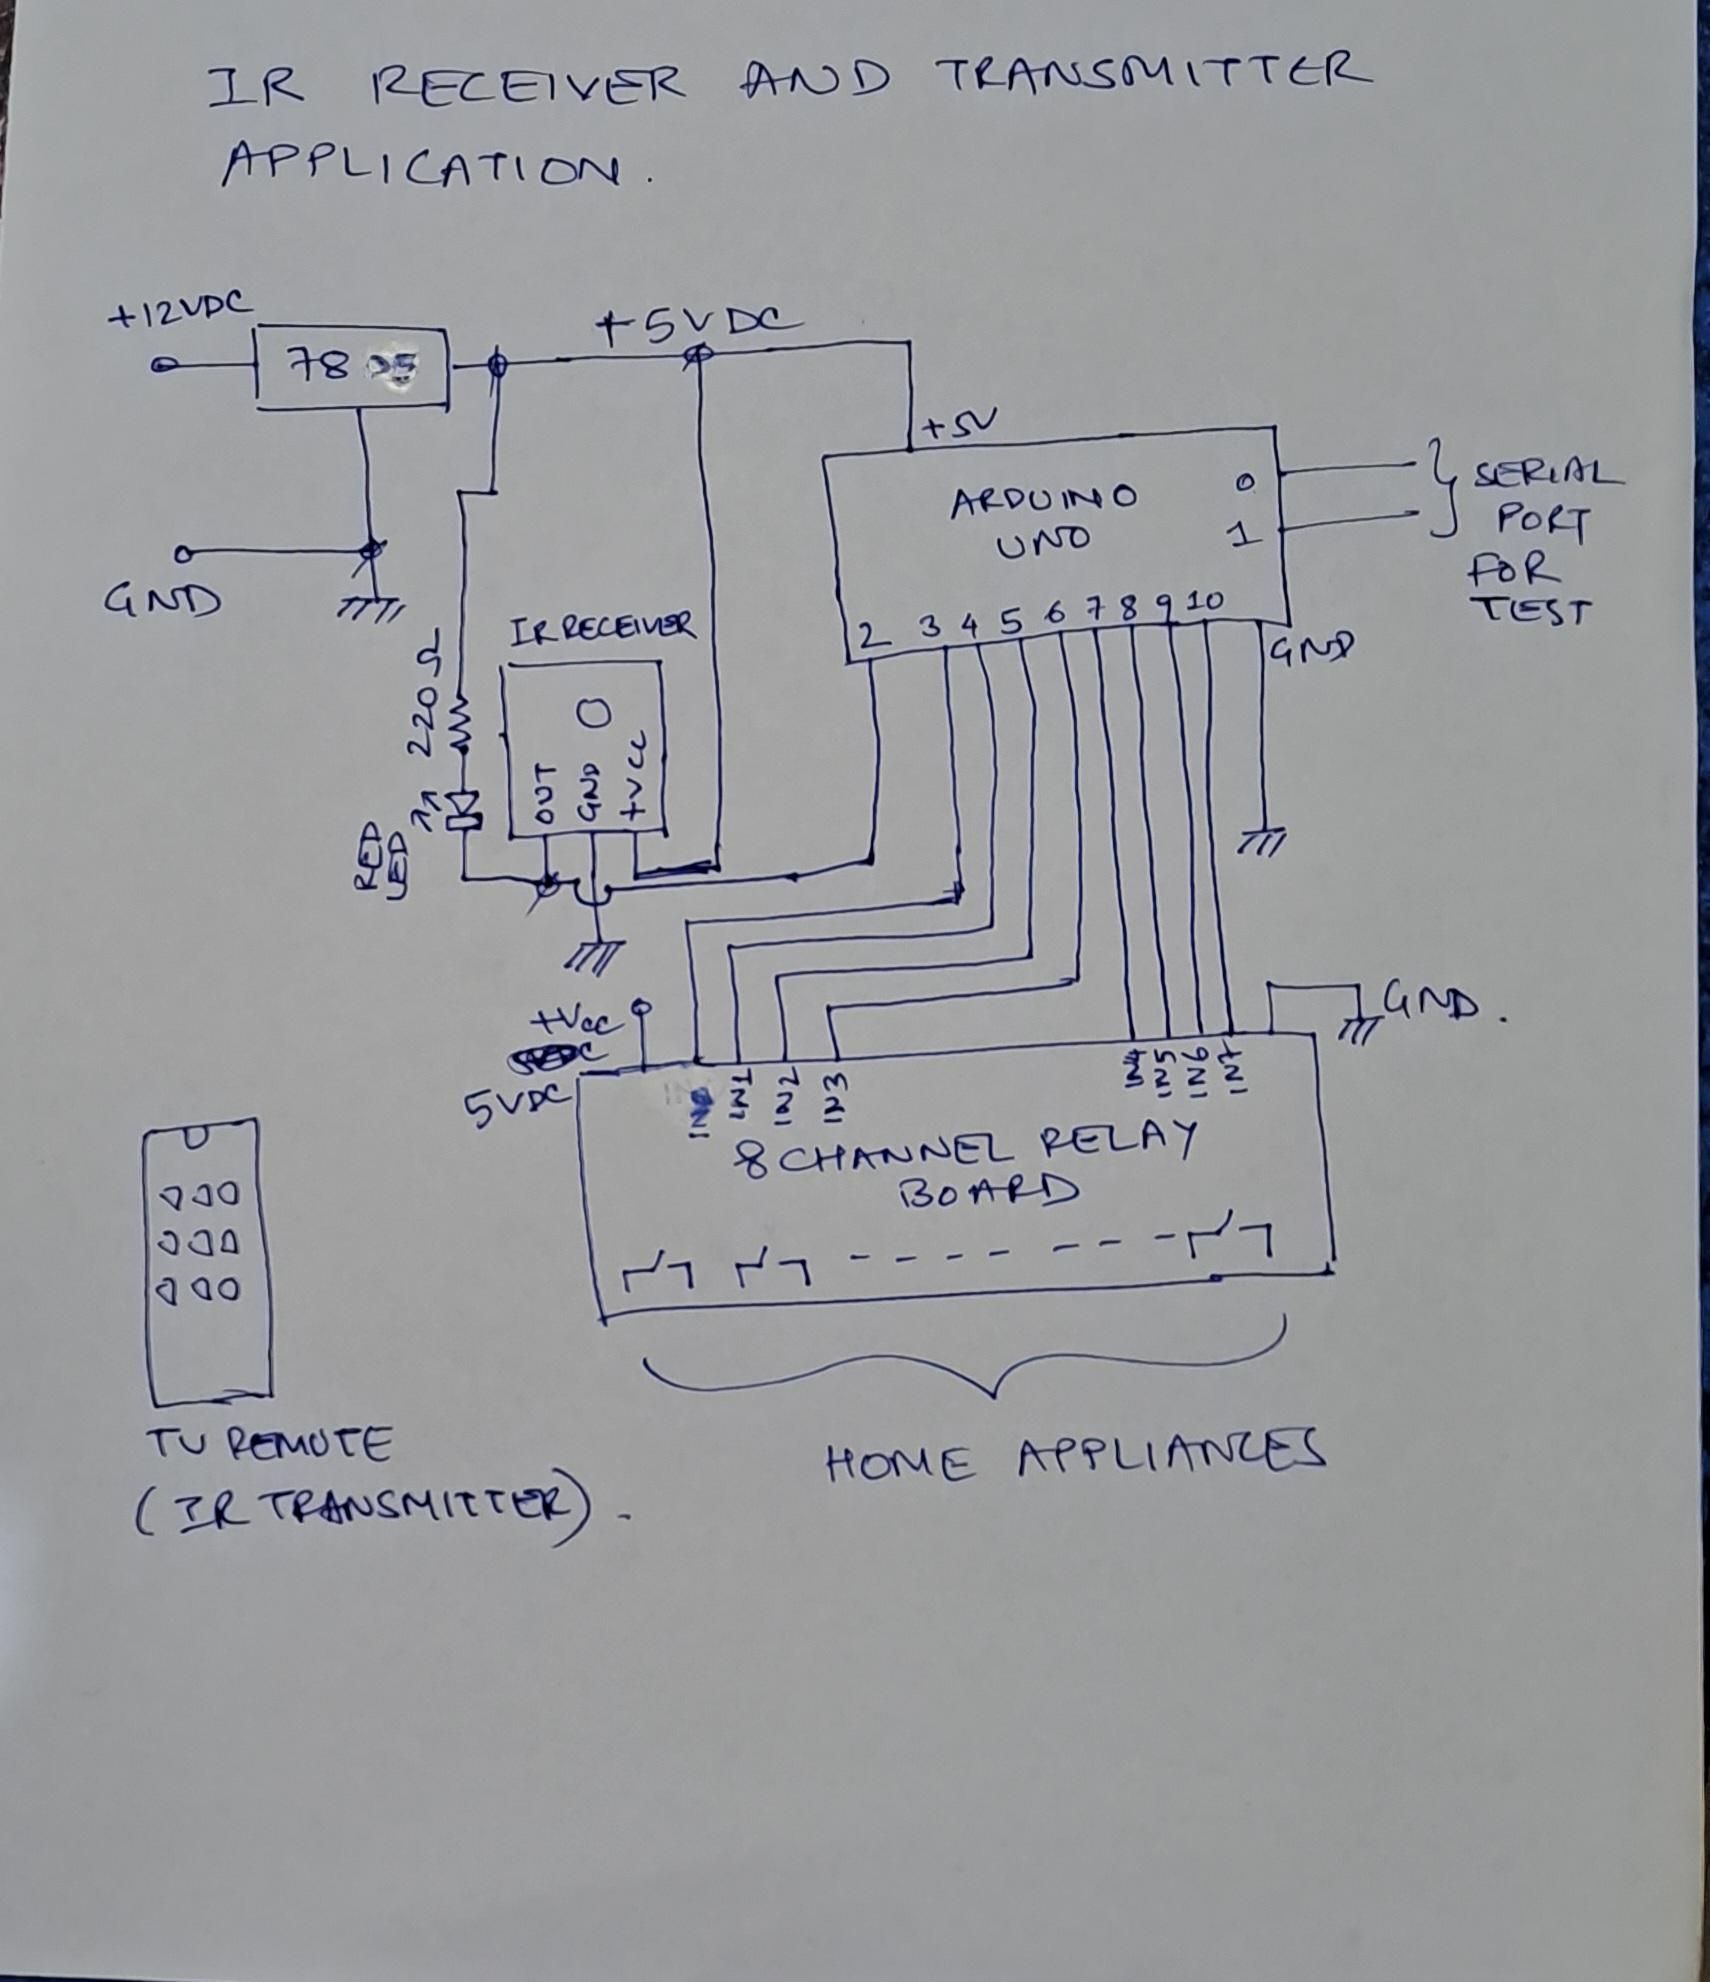 IR RECEIVER AND TRANSMITTER
APPLICATION.
+12VDC
7805
+5VDC
+5V
ARDUINO
UNO
0
1
SERIAL
PORT
FOR
TEST
GND
2 3 4 5 6 7 8 9 10
GND
220Ω
RED
LED
IR RECEIVER
OUT
GND
+VCC
+Vcc
5VDC
GND.
IN1
IN2
IN3
IN4
IN5
IN6
IN7
8 CHANNEL RELAY
BOARD
TV REMOTE
(IR TRANSMITTER).
HOME APPLIANCES